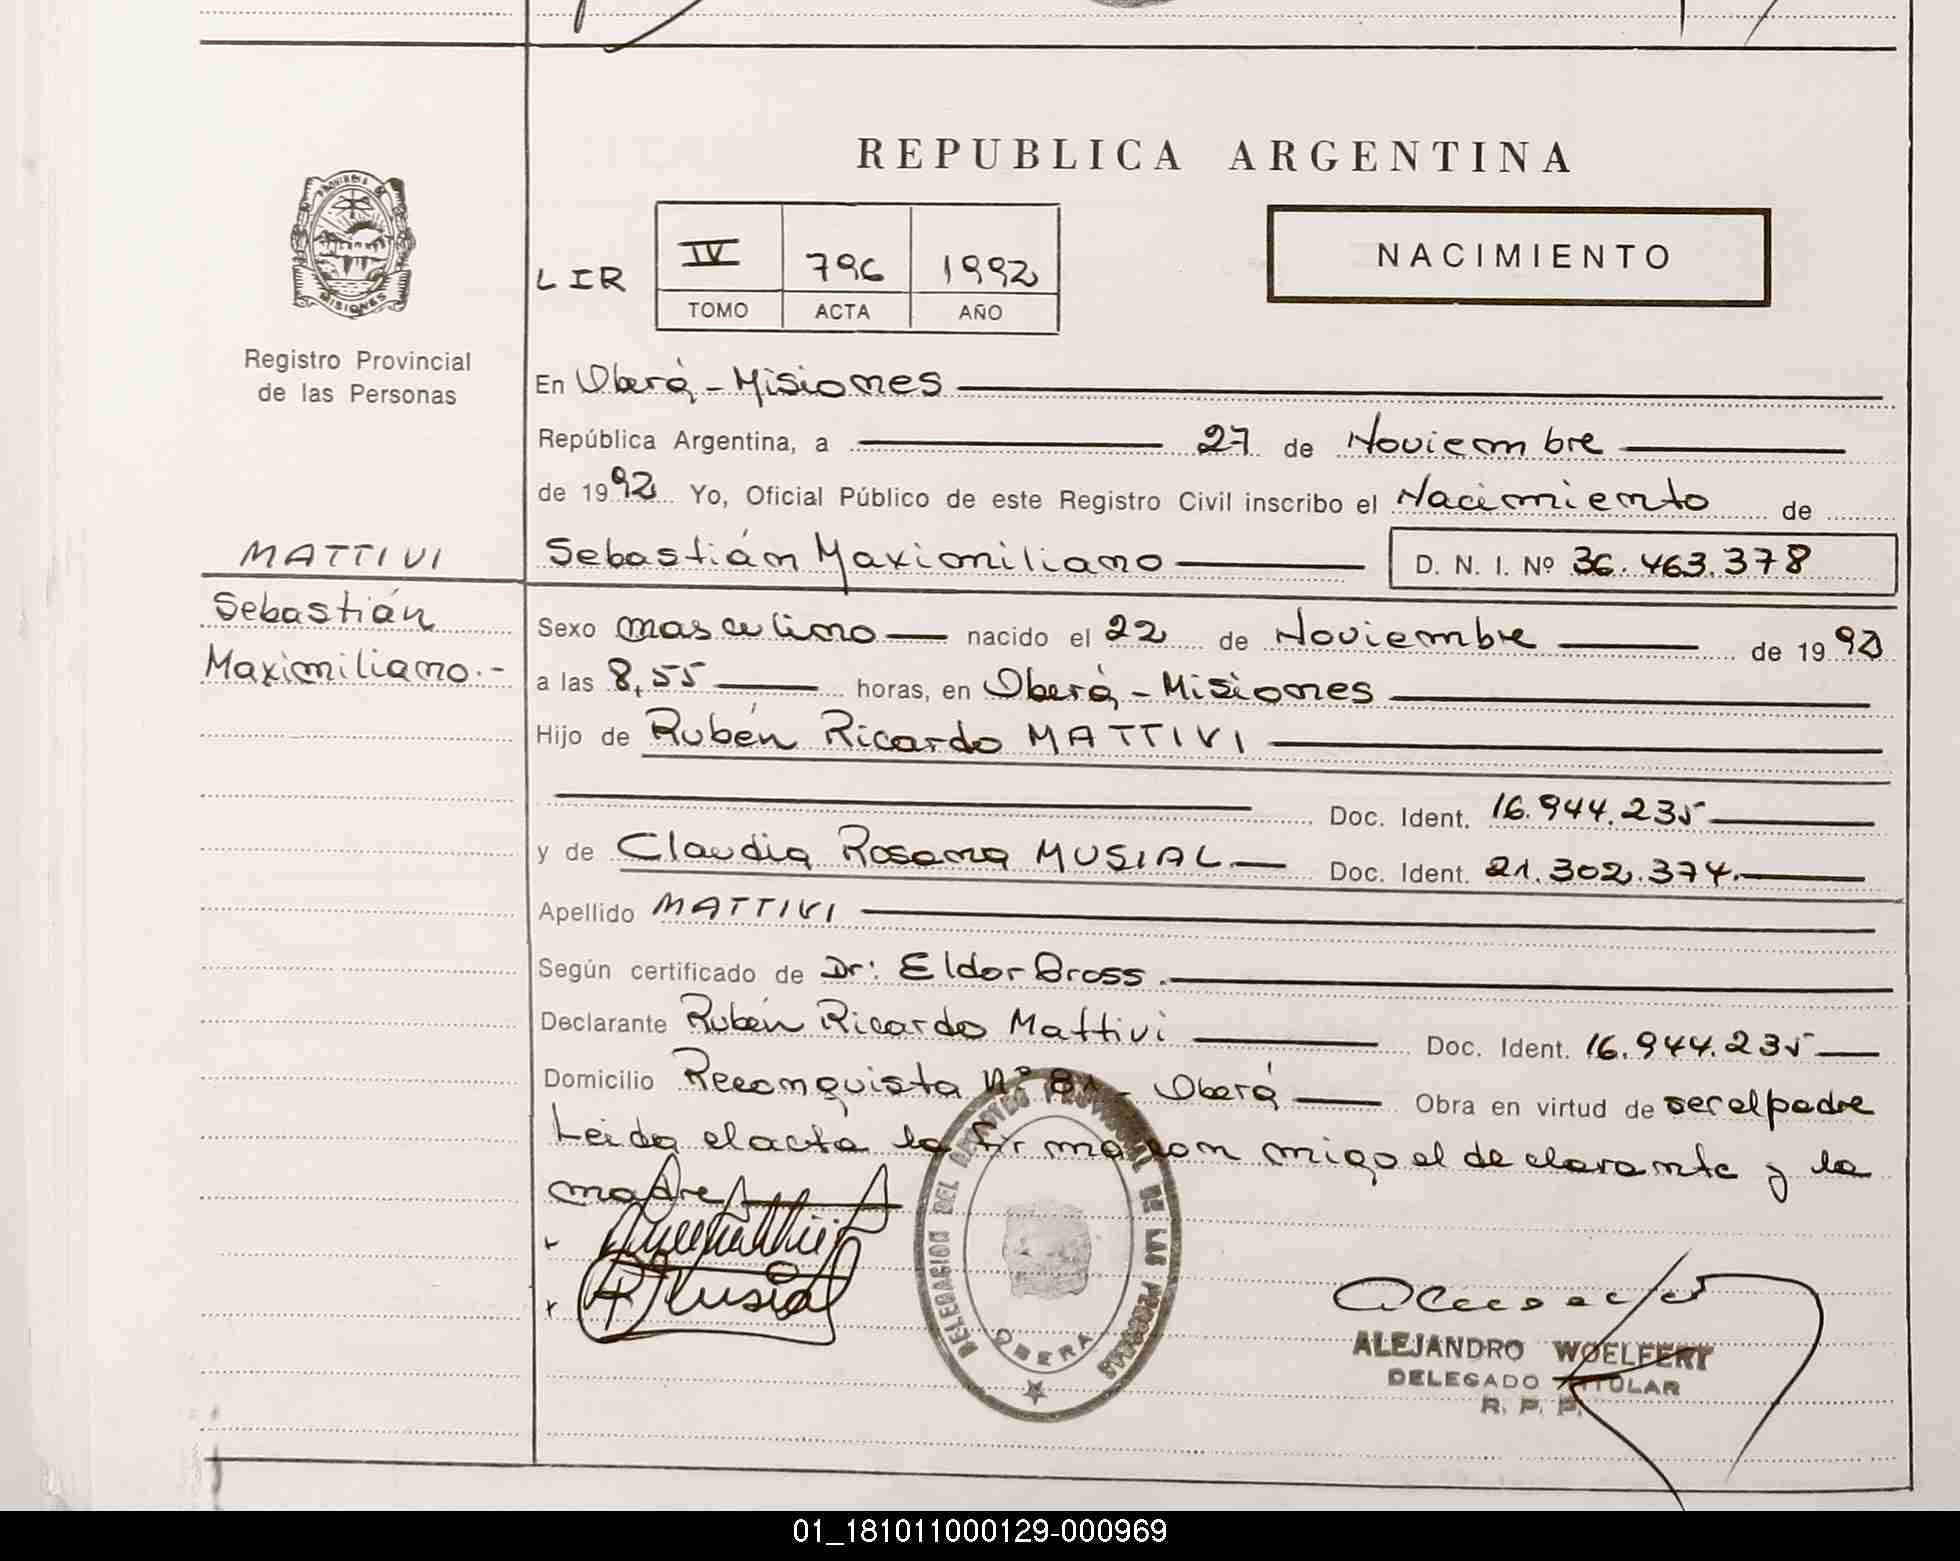 REPUBLICA ARGENTINA
PROVINCIA DE
MISIONES
Registro Provincial
de las Personas
LIR
IV 796 1992
TOMO ACTA AÑO
NACIMIENTO
En Oberá - Misiones
República Argentina, a 27 de Noviembre
de 1992 Yo, Oficial Público de este Registro Civil inscribo el Nacimiento de
MATTIVI
Sebastián
Maximiliano.-
Sebastián Maximiliano D. N. I. Nº 36.463.378
Sexo masculino nacido el 22 de Noviembre de 1992
a las 8,55 horas, en Oberá - Misiones
Hijo de Rubén Ricardo MATTIVI
Doc. Ident. 16.944.235
y de Claudia Rosana MUSIAL Doc. Ident. 21.302.374.
Apellido MATTIVI
Según certificado de Dr: Eldor Bross.
Declarante Rubén Ricardo Mattivi Doc. Ident. 16.944.235
Domicilio Reconquista Nº 81 - Oberá Obra en virtud de ser el padre
Leida el acta la firma con migo el declarante y la
madre
Musial
DELEGACION DEL REGISTRO PROVINCIAL DE LAS PERSONAS
OBERA
ALEJANDRO WOELFERT
DELEGADO TITULAR
R. P. P.
01_181011000129-000969